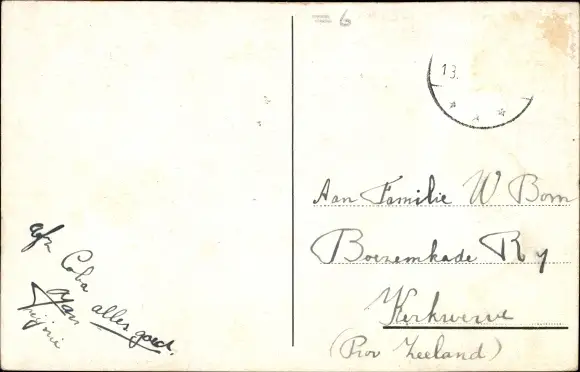 6
13.
Aan Familie W Bom
Boezemkade R y
Kerkwerve
(Prov Zeeland)
afz Coba
alles goed.